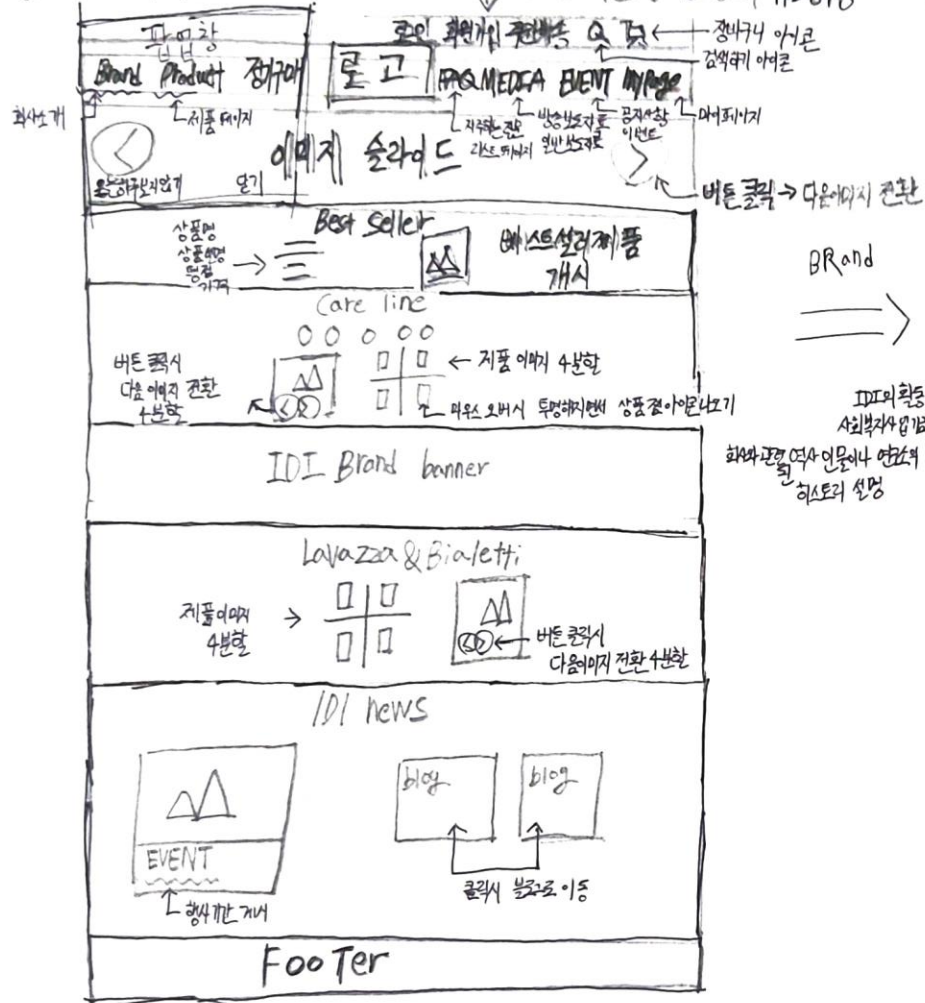 팝업창
로그인 회원가입 주문배송
장바구니 아이콘
검색하기 아이콘
Brand Product 정기구매
로고
FAQ MEDIA EVENT mypage
회사소개
제품 페이지
자주하는 질문
리스트 페이지
방송보도자료
일반보도자료
공지사항
이벤트
마이페이지
이미지 슬라이드
오늘하루보지않기 닫기
버튼 클릭 → 다음이미지 전환
Best Seller
상품명
상품설명
평점
가격
베스트셀러제품
개시
BRand
Care line
버튼 클릭시
다음 이미지 전환
4분할
제품 이미지 4분할
마우스 오버시 투명해지면서 상품 찜 아이콘 나오기
IDI의 활동
회사와 관련된 역사 인물이나 연구소의
히스토리 설명
IDI Brand banner
Lavazza & Bialetti
제품이미지
4분할
버튼 클릭시
다음이미지 전환 4분할
IDI news
blog
blog
EVENT
행사기간 게시
클릭시 블로그로 이동
FooTer